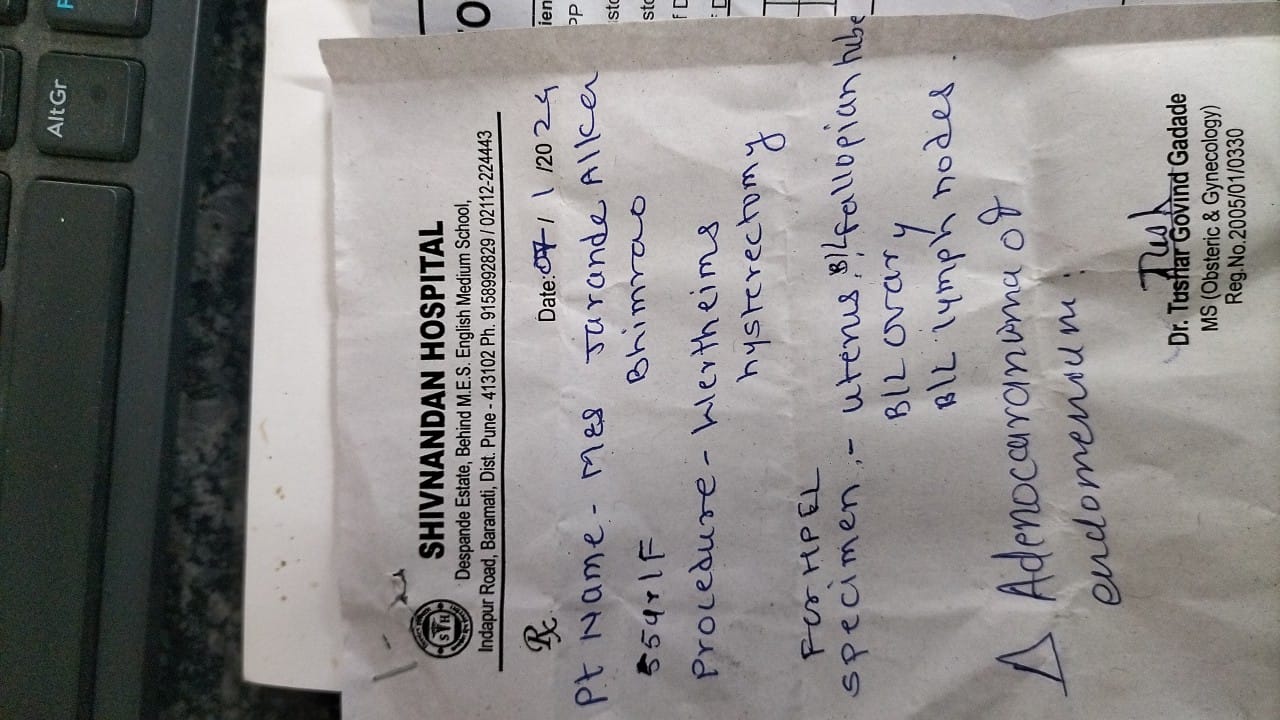 AltGr
SHIVNANDAN HOSPITAL
Despande Estate, Behind M.E.S. English Medium School,
Indapur Road, Baramati, Dist. Pune - 413102 Ph. 9158992829 / 02112-224443
STH
Rx
Date: 07/1/2024
Pt Name - Mrs Jarande Alka
Bhimrao
55yr/F
Procedure - Wertheims
hysterectomy
For HPEL
specimen :- uterus, B/L fallopian tube
B/L ovary
B/L lymph nodes.
Δ Adenocarcanoma of
endomenium.
Dr. Tushar Govind Gadade
MS (Obsteric & Gynecology)
Reg.No.2005/01/0330